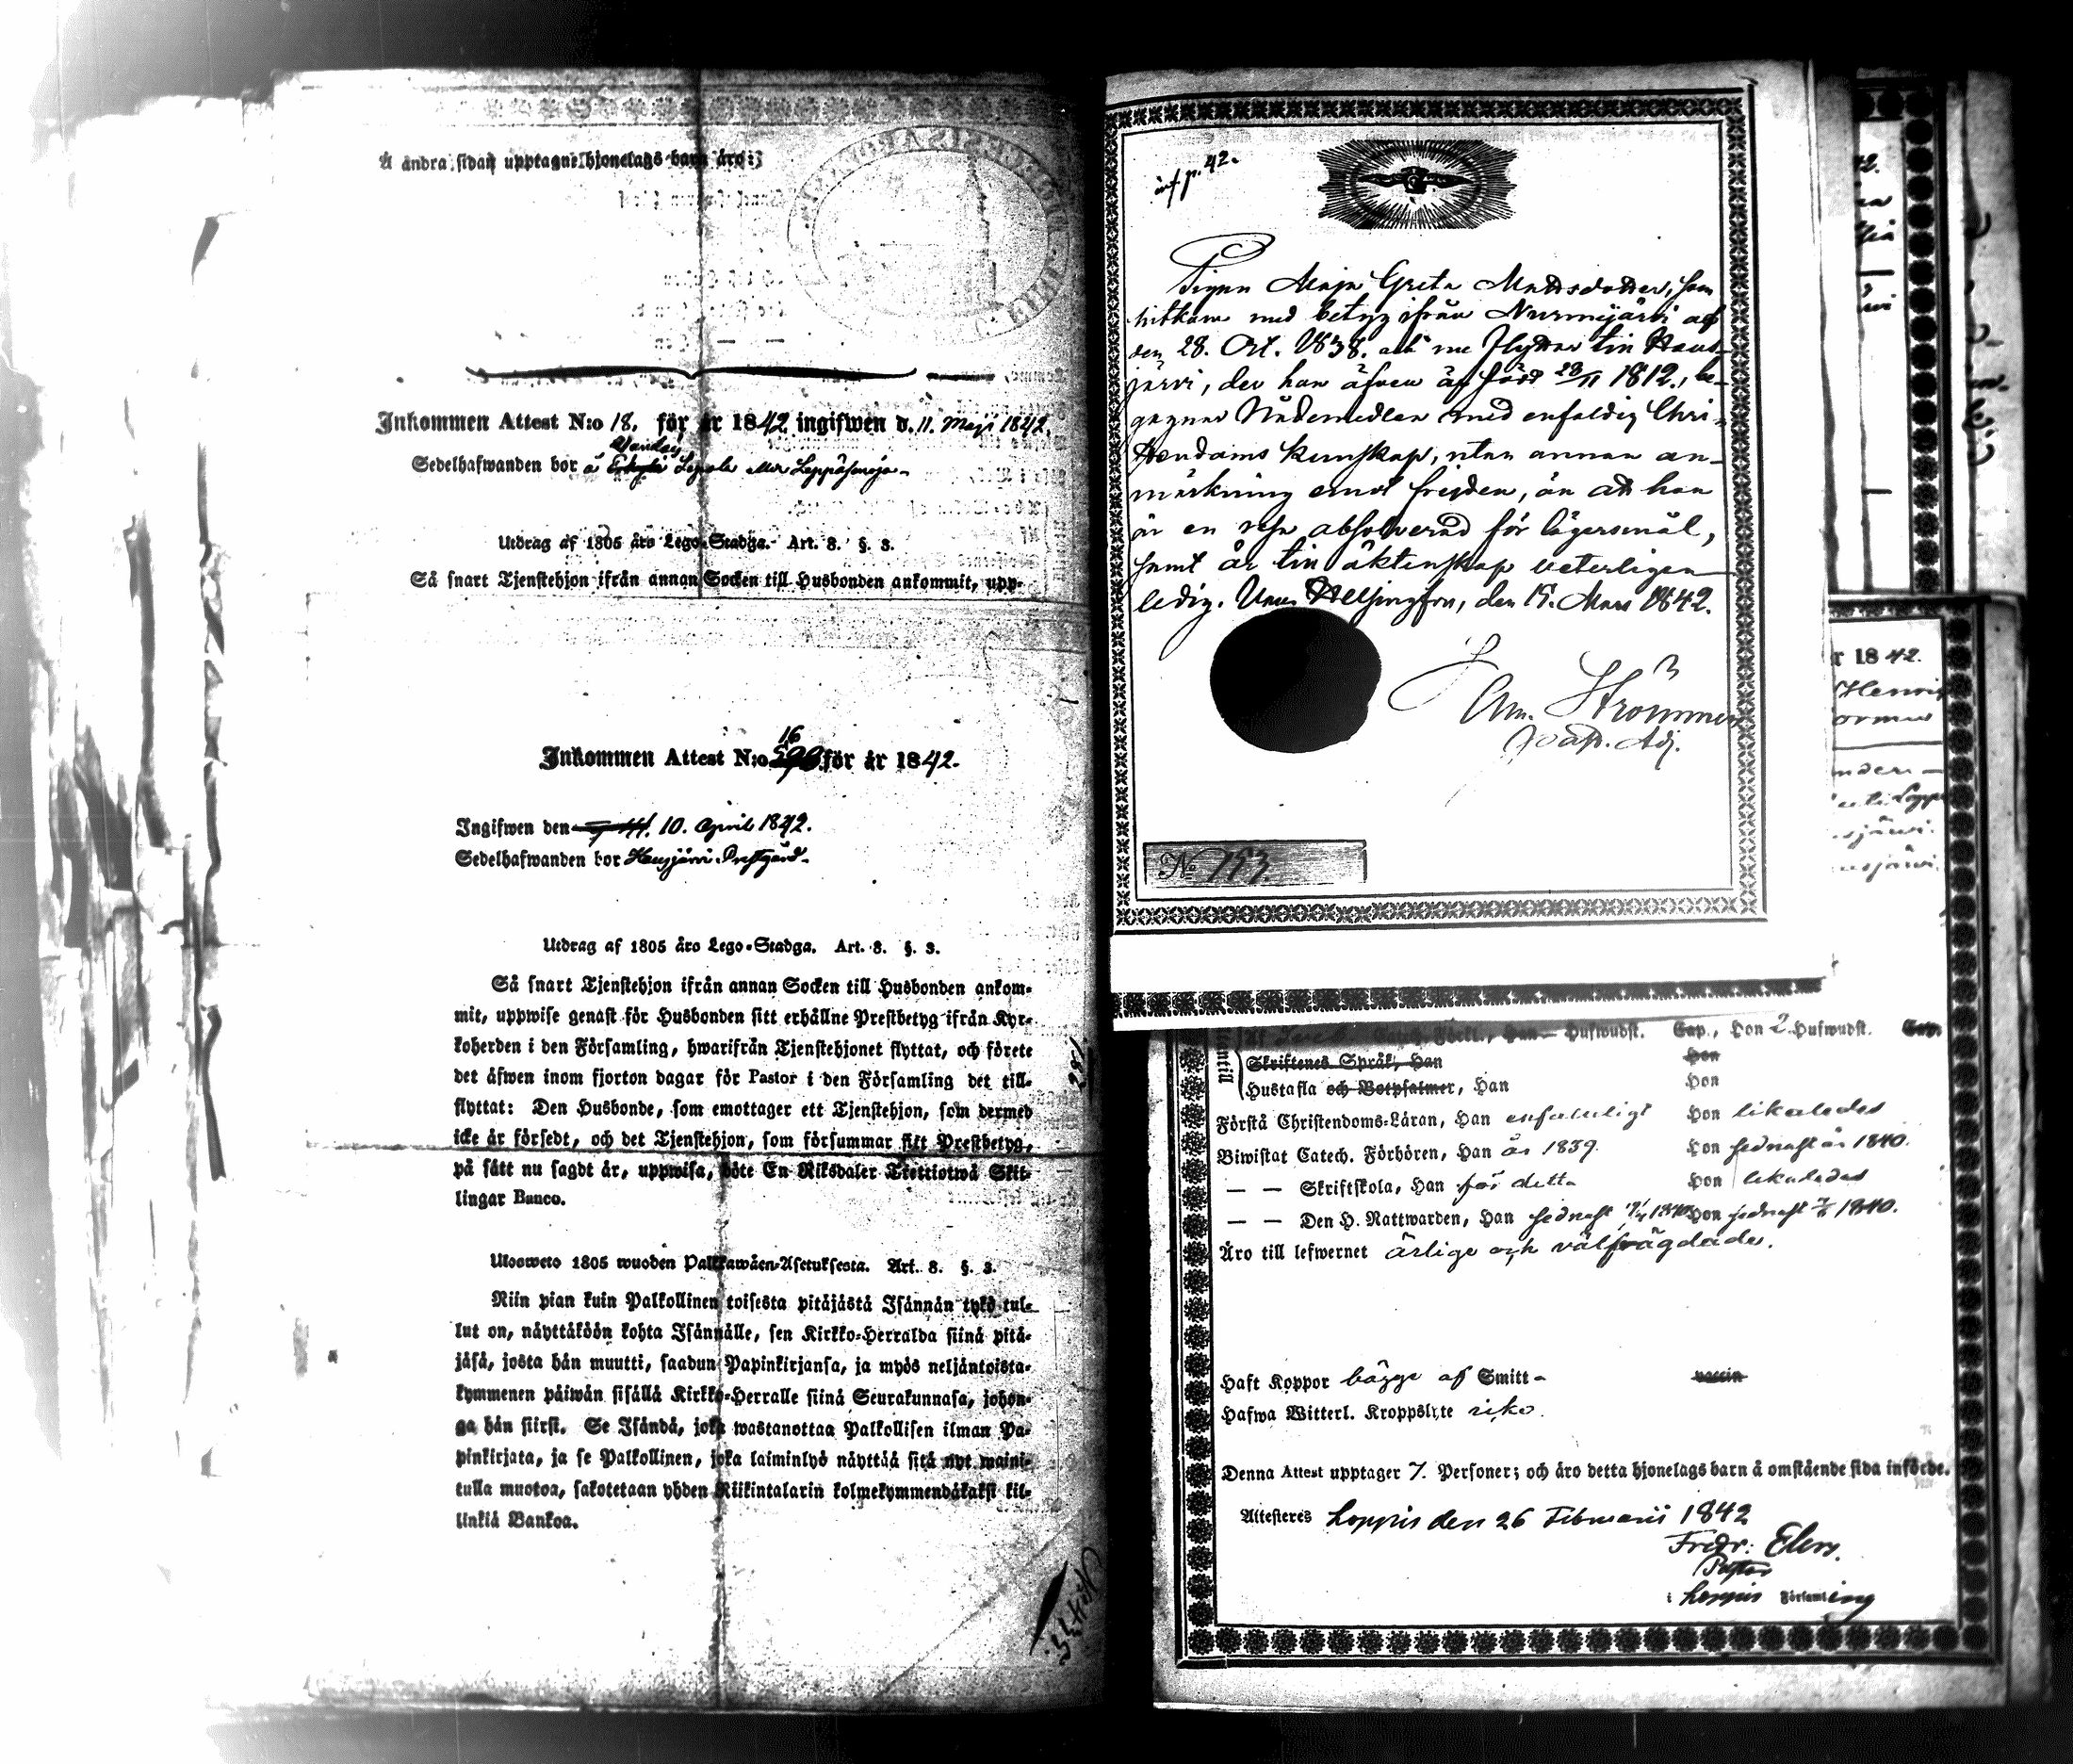 Å andra sidan upptagne hjonelags barn äro:
Inkommen Attest N:o 18. för år 1842 ingifwen d. 11. Maji 1842.
Sedelhafwanden bor å
Utdrag af 1805 års Lego-Stadga. Art. 8. §. 3.
Så snart Tjenstehjon ifrån annan Socken till Husbonden ankommit, upp-
16
Inkommen Attest N:o för år 1842.
Ingifwen den 10. April 1842.
Sedelhafwanden bor Hausjärvi Prestgård.
Utdrag af 1805 års Lego-Stadga. Art. 8. §. 3.
Så snart Tjenstehjon ifrån annan Socken till Husbonden ankom-
mit, uppwise genast för Husbonden sitt erhållne Prestbetyg ifrån Kyr-
koherden i den Församling, hwarifrån Tjenstehjonet flyttat, och förete
det äfwen inom fjorton dagar för Pastor i den Församling det till-
flyttat: Den Husbonde, som emottager ett Tjenstehjon, som dermed
icke är försedt, och det Tjenstehjon, som försummar sitt Prestbetyg,
på sätt nu sagdt är, uppwisa, böte En Riksdaler Trettiotwå Skil-
lingar Banco.
Ulosweto 1805 wuoden Palkkawäen-Asetuksesta. Art. 8. §. 3.
Niin pian kuin Palkollinen toisesta pitäjästä Isännän tykö tul-
lut on, näyttäköön kohta Isännälle, sen Kirkko-Herralda siinä pitä-
jäsä, josta hän muutti, saadun Papinkirjansa, ja myös neljäntoista-
kymmenen päiwän sisällä Kirkko-Herralle siinä Seurakunnasa, johon-
ga hän siirst. Se Isändä, joka wastanottaa Palkollisen ilman Pa-
pinkirjata, ja se Palkollinen, joka laiminlyö näyttää sitä nyt maini-
tulla muotoa, sakotetaan yhden Riikintalarin kolmekymmendäkaksi kil-
linkiä Bankoa.
inf p. 42.
Pigan Maja Greta Mattsdotter, som
hitkom med betyg ifrån Nurmijärvi af
den 28. Oct. 1838. och nu flyttar till Haus-
järvi, der hon äfven är född 28/11 1812., be-
gagnar Nådemedlen med enfaldig Chri-
stendoms kunskap, utan annan an-
märkning emot frejden, än att hon
är en resa absolverad för lägersmål,
samt är till äktenskap veterligen
ledig. Helsingfors, den 15. Mars 1842.
Strömmer
Past. Adj.
No 153.
r 1842.
Förkl., Han Hufwudst. Cap., Hon 2 Hufwudst. Cap.
Skriftenes Språk, Han Hon
Hustafla och Botpsalmer, Han Hon
Förstå Christendoms-Läran, Han enfaldeligt Hon likaledes
Biwistat Catech. Förhören, Han år 1839. Hon sednast år 1840.
— — Skriftskola, Han för detta Hon likaledes
— — Den H. Nattwarden, Han sednast Hon sednast 1840.
Äro till lefwernet ärlige och välfrägdade.
Haft Koppor bägge af Smitt- vaccin
Hafwa Witterl. Kroppslyte icke.
Denna Attest upptager 7. Personer; och äro detta hjonelags barn å omstående sida införde.
Attesteres Loppis den 26 Februarii 1842
Fredr: Elers.
Pastor
i Loppis Församling